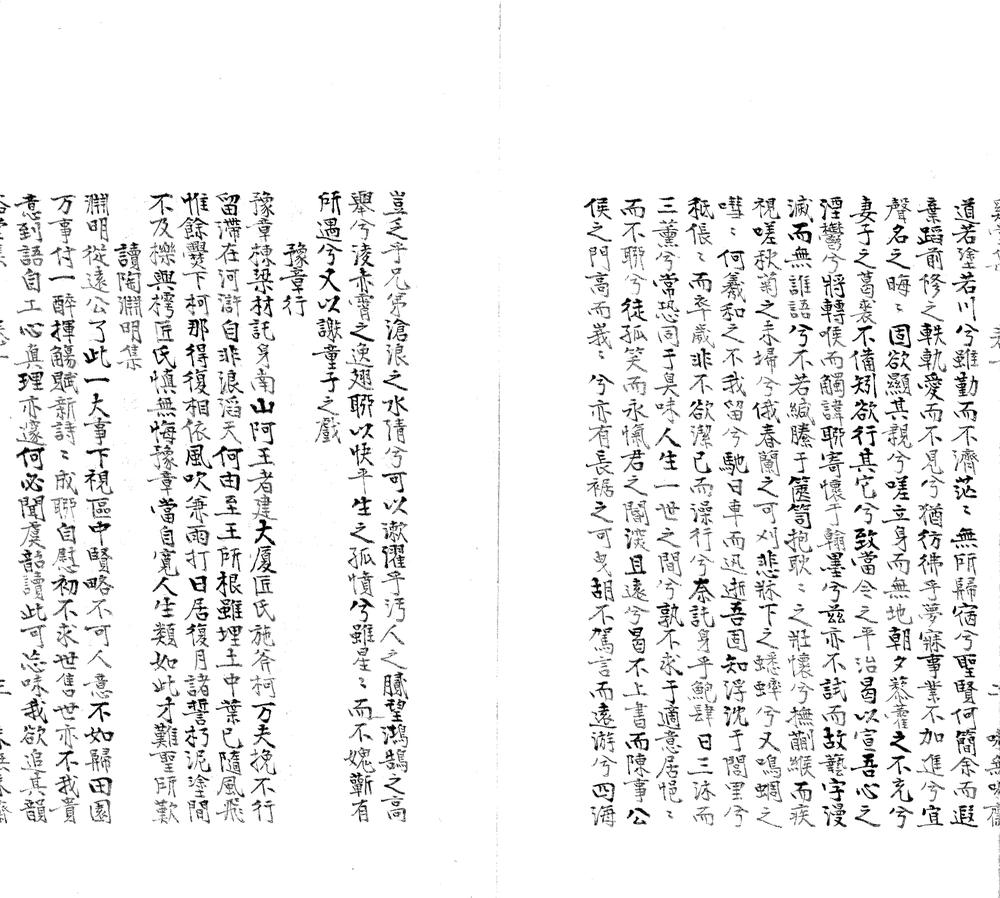 道若塗若川兮雖勤而不濟茫〻無所歸宿兮聖賢何簡余而遐
棄蹈前修之軼軌愛而不見兮猶彷彿乎夢寐事業不加進兮宜
聲名之晦〻固欲顯其親兮嗟立身而無地朝夕藜藿之不充兮
妻子之葛裘不備矧欲行其它兮致當今之平治曷以宣吾心之
湮鬱兮將轉喉而觸諱聊寄懷于翰墨兮茲亦不試而故藝字漫
滅而無誰語兮不若緘縢于篋笥抱耿〻之壯懷兮撫蒯緱而疾
視嗟秋菊之未掃兮俄春蘭之可刈悲牀下之蟋蟀兮又鳴蜩之
嘒〻何羲和之不我留兮馳日車而迅逝吾固知浮沈于閭里兮
秪倀〻而卒歲非不欲潔己而澡行兮奈託身乎鮑肆日三沐而
三薰兮常恐同于臭味人生一世之間兮孰不求于適意居悒〻
而不聊兮徒孤笑而永愾君之閽邃且遠兮曷不上書而陳事公
侯之門高而峩〻兮亦有長裾之可曳胡不駕言而遠游兮四海
豈乏乎兄弟滄浪之水清兮可以漱濯乎汚人之膩望鴻鵠之高
舉兮淩赤霄之逸翅聊以快平生之孤憤兮雖星〻而不媿蘄有
所遇兮又以謝童子之戲
豫章行
豫章棟梁材託身南山阿王者建大厦匠氏施斧柯万夫挽不行
留滯在河滸自非浪滔天何由至王所根雖埋土中葉已隨風飛
惟餘爨下柯那得復相依風吹兼雨打日居復月諸誓朽泥塗間
不及櫟與樗匠氏慎無悔豫章當自寬人生類如此才難聖所歎
讀陶淵明集
淵明從遠公了此一大事下視區中賢略不可人意不如歸田園
万事付一醉揮觴賦新詩〻成聊自慰初不求世售世亦不我貴
意到語自工心真理亦邃何必聞虞韶讀此可忘味我欲追其韻